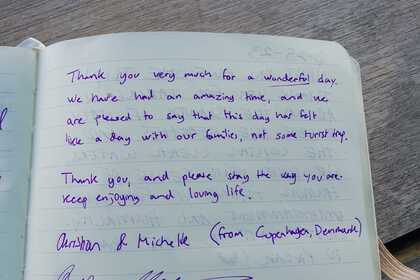 Thank you very much for a wonderful day.
We have had an amazing time, and we
are pleased to say that this day has felt
like a day with our families, not some turist trip.
Thank you, and please stay the way you are.
Keep enjoying and loving life.
Christian & Michelle (from Copenhagen, Denmark)